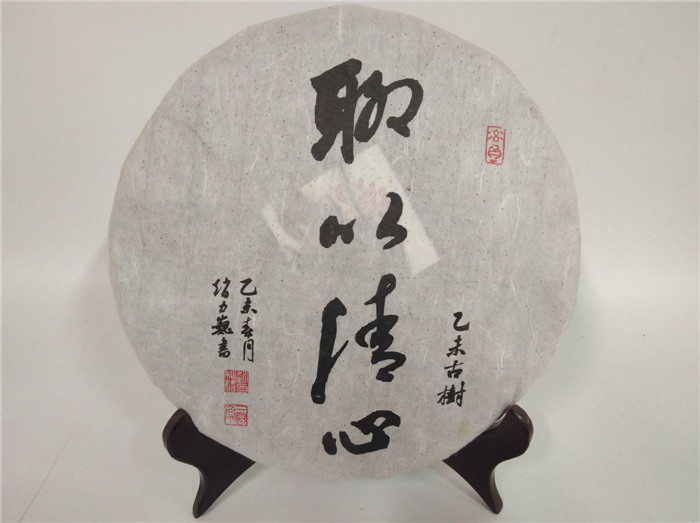 聊以清心
乙未古樹
乙未春月